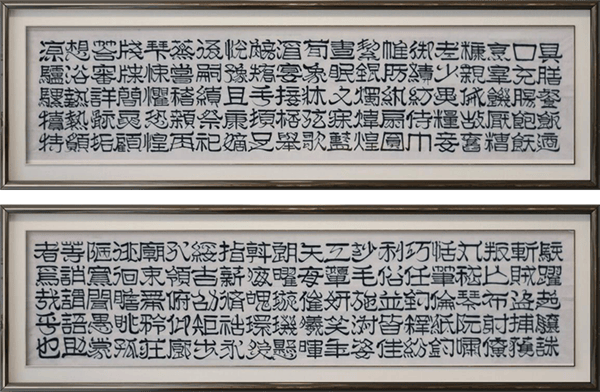 具膳餐飯適
口充腸飽飫
烹宰饑厭糟
糠親戚故舊
老少異糧妾
御績紡侍巾
帷房紈圓
絜銀燭煒煌
晝眠夕寐藍
筍象牀弦歌
酒宴接杯舉
觴矯手頓足
悅豫且康嫡
後嗣續祭祀
蒸嘗稽顙再
拜悚懼恐惶
牋牒簡要顧
答審詳骸垢
想浴執熱願
涼驢騾犢特
駭躍超驤誅
斬賊盜捕獲
叛亡布射僚
丸嵇琴阮嘯
恬筆倫紙鈞
巧任釣釋紛
利俗並皆佳
妙毛施淑姿
工顰妍笑年
矢每催曦暉
朗曜璇璣懸
斡晦魄環照
指薪修祜永
綏吉劭矩步
引領俯仰廊
廟束帶矜莊
徘徊瞻眺孤
陋寡聞愚蒙
等誚謂語助
者焉哉乎也